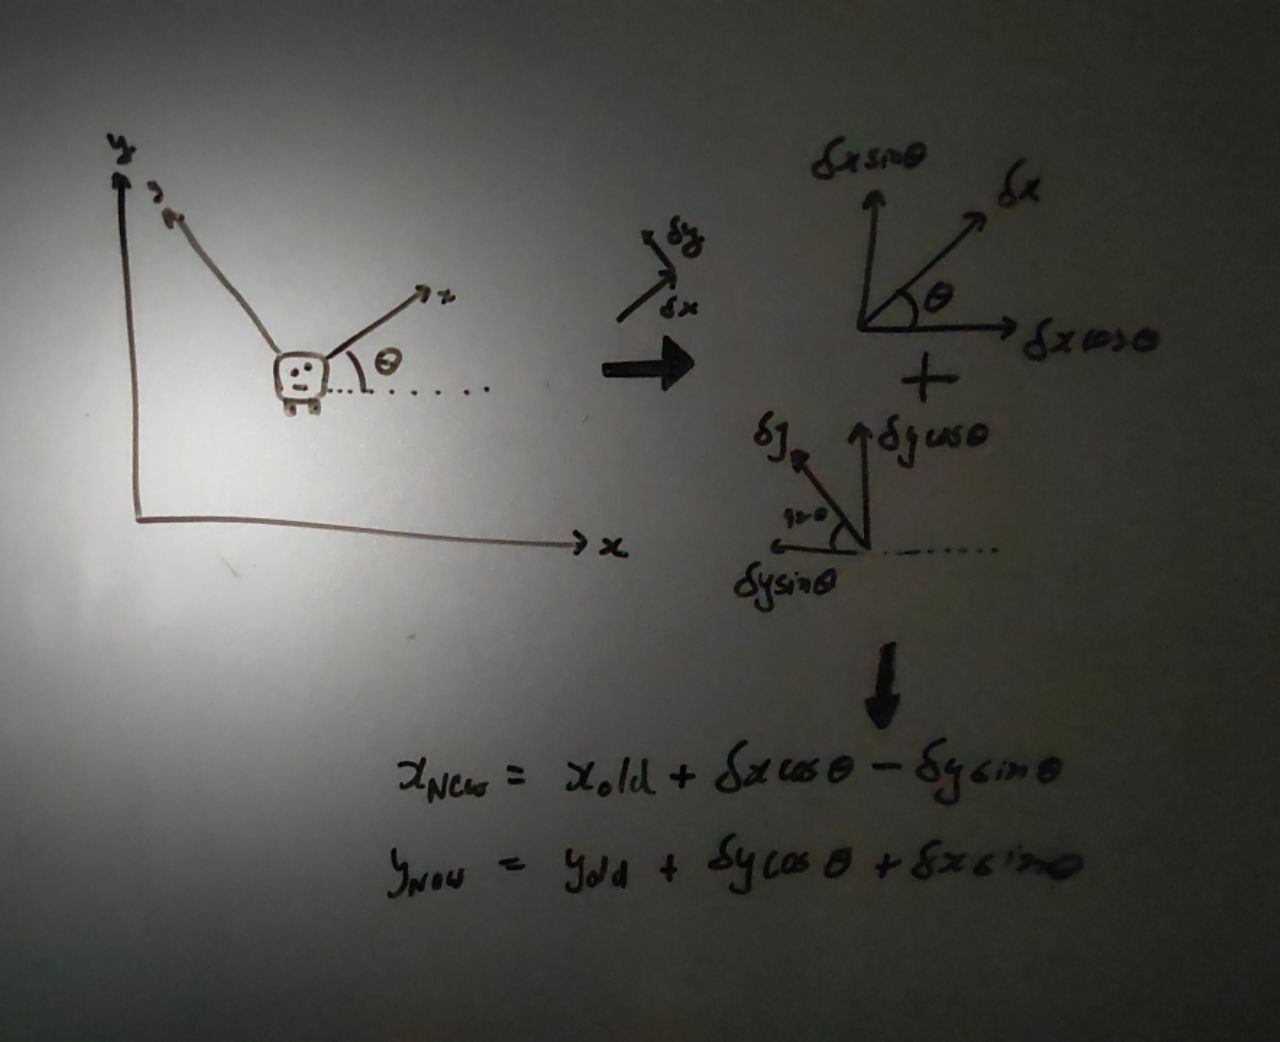 y
y
x
θ
x
δy
δx
δx sinθ
δx
θ
δx cosθ
+
δy
δy cosθ
90-θ
δy sinθ
x_New = x_old + δx cos θ - δy sin θ
y_New = y_old + δy cos θ + δx sin θ